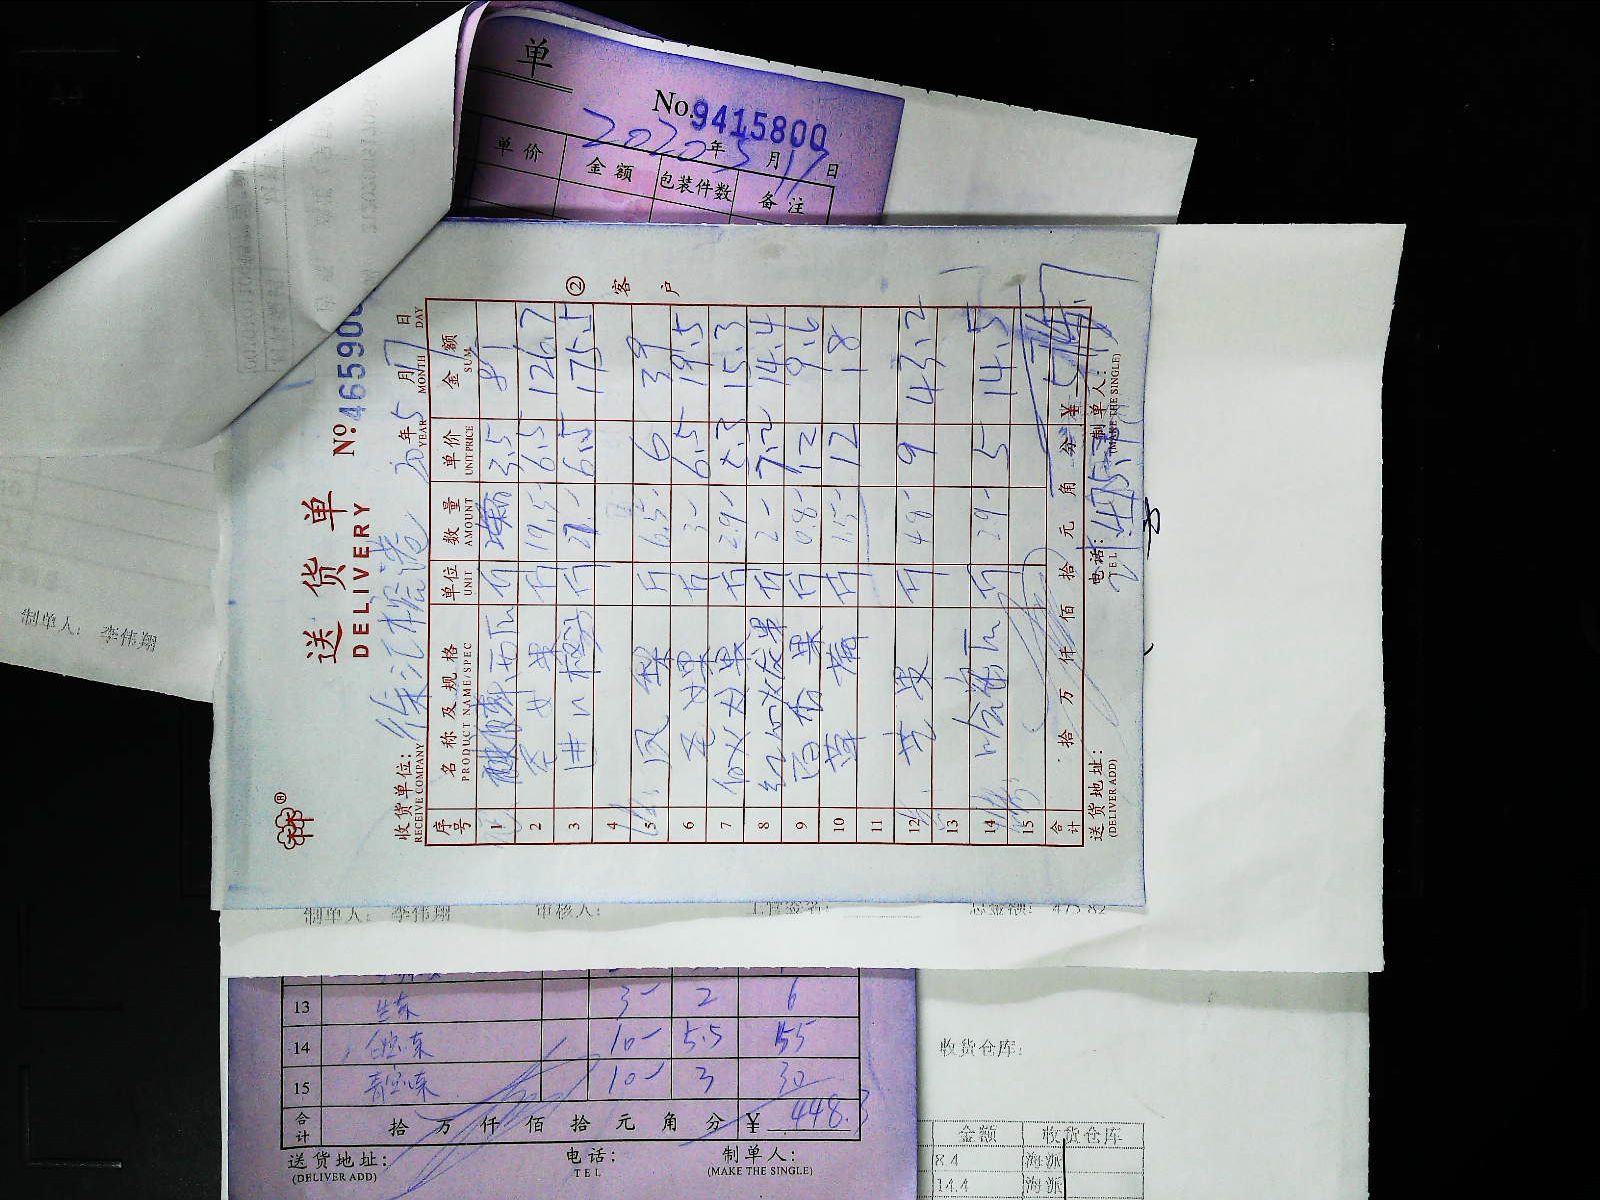 单
No.9415800
2020年5月17日
单价 金额 包装件数 备注
制单人: 李伟翔
送货单
DELIVERY
No 465900
② 客户
收货单位: 徐汇
RECEIVE COMPANY
2020年5月17日
YEAR MONTH DAY
序号 名称及规格 单位 数量 单价 金额
PRODUCT NAME/SPEC UNIT AMOUNT UNIT PRICE SUM
1 西瓜 斤 3.5 81
2 奇异果 斤 19.5 6.5 126.7
3 进口橙 斤 27 6.5 175.5
4
5 凤梨 斤 6.5 6 39
6 斤 3 6.5 19.5
7 白火龙果 斤 2.9 15.3
8 红心火龙果 斤 2 7.2 14.4
9 百香果 斤 0.8 12 9.6
10 草莓 斤 1.5 12 18
11
12 芒果 斤 4.8 9 43.2
13
14 哈密瓜 斤 2.9 5 14.5
15
合计 拾 万 仟 佰 拾 元 角 分 ¥
送货地址: 电话: 制单人:
(DELIVER ADD) TEL (MAKE THE SINGLE)
制单人: 李伟翔 审核人: 总金额: 475.82
13 生菜 3 2 6
14 10 5.5 55
15 10 3 30
合计 拾 万 仟 佰 拾 元 角 分 ¥ 448.3
送货地址: 电话: 制单人:
(DELIVER ADD) TEL (MAKE THE SINGLE)
收货仓库:
金额 收货仓库
8.4 海派
14.4 海派